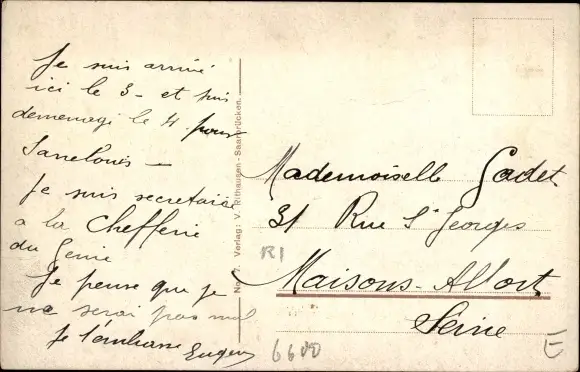 Je suis arrivé
ici le 3 - et suis
demenagé le 4 pour
Sarrelouis -
Je suis secretaire
a la Chefferie
du Genie
Je pense que je
ne serai pas mal
Je t'embrasse Eugene
No. 7. Verlag: V. Rithausen - Saarbrücken.
Mademoiselle Gadet
31 Rue St Georges
Maisons-Alfort
Seine
R1
6600
E